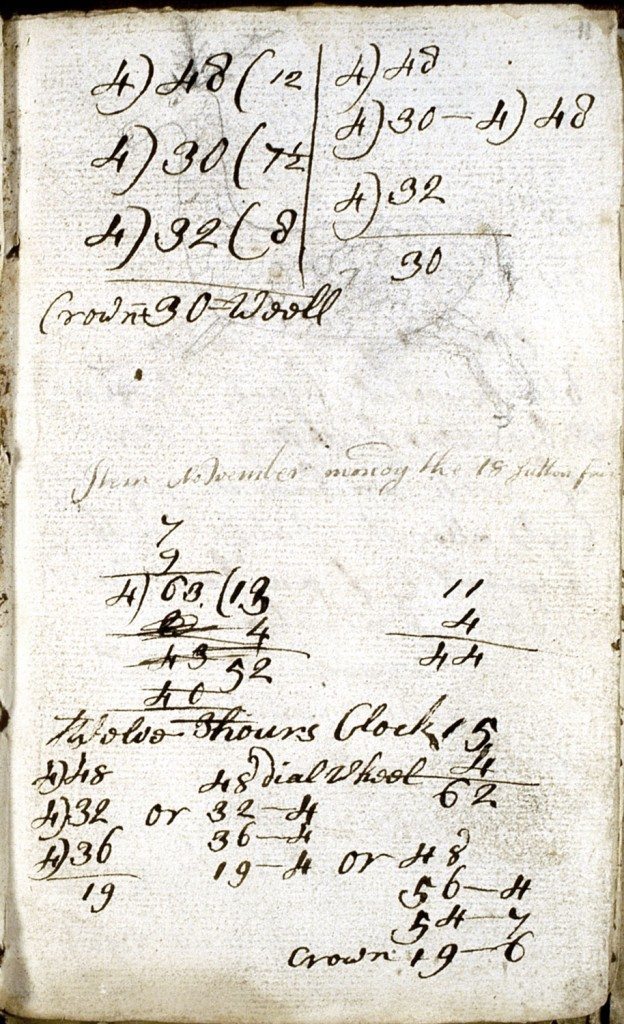 11
4) 48 (12
4) 30 (7½
4) 32 (8
4) 48
4) 30 — 4) 48
4) 32
30
Crown 30 Weell
Item November money the 18 Sutton fair
7
9
4) 63 (13
4
43 52
40
11
4
44
twelve 3hours Clock 15
4
62
4)48
4)32 or
4)36
19
48 dial Wheel
32—4
36—4
19—4 or 48
56—4
54—7
crown 19—6